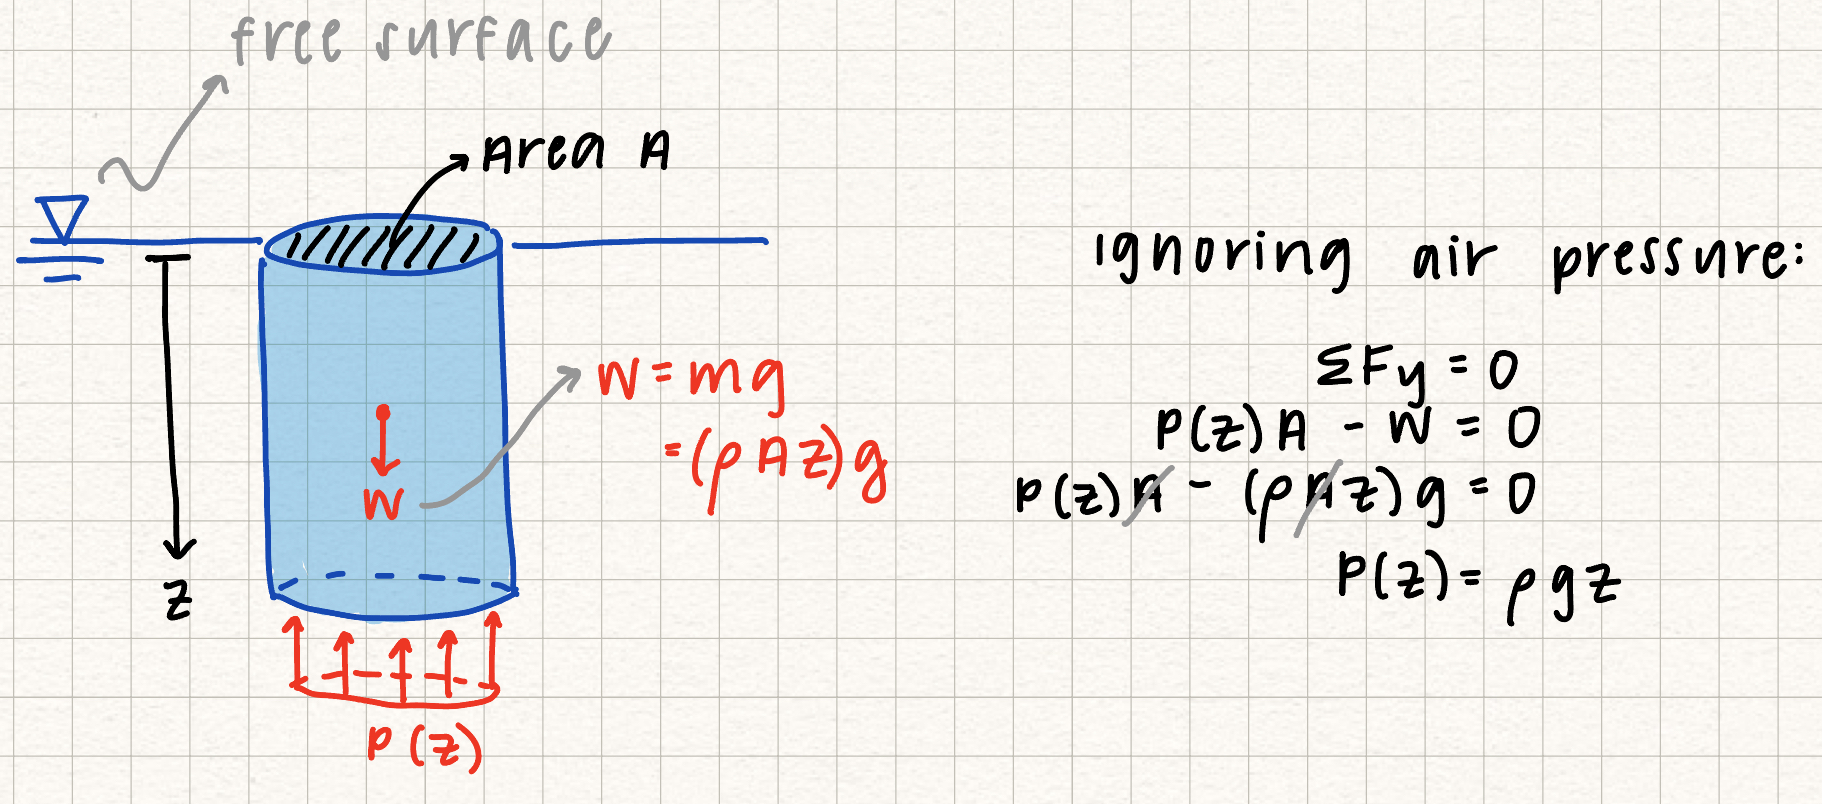 free surface
Area A
z
W
W = mg
= (ρAz)g
P(z)
Ignoring air pressure:
ΣFy = 0
P(z)A - W = 0
P(z)A - (ρAz)g = 0
P(z) = ρgz